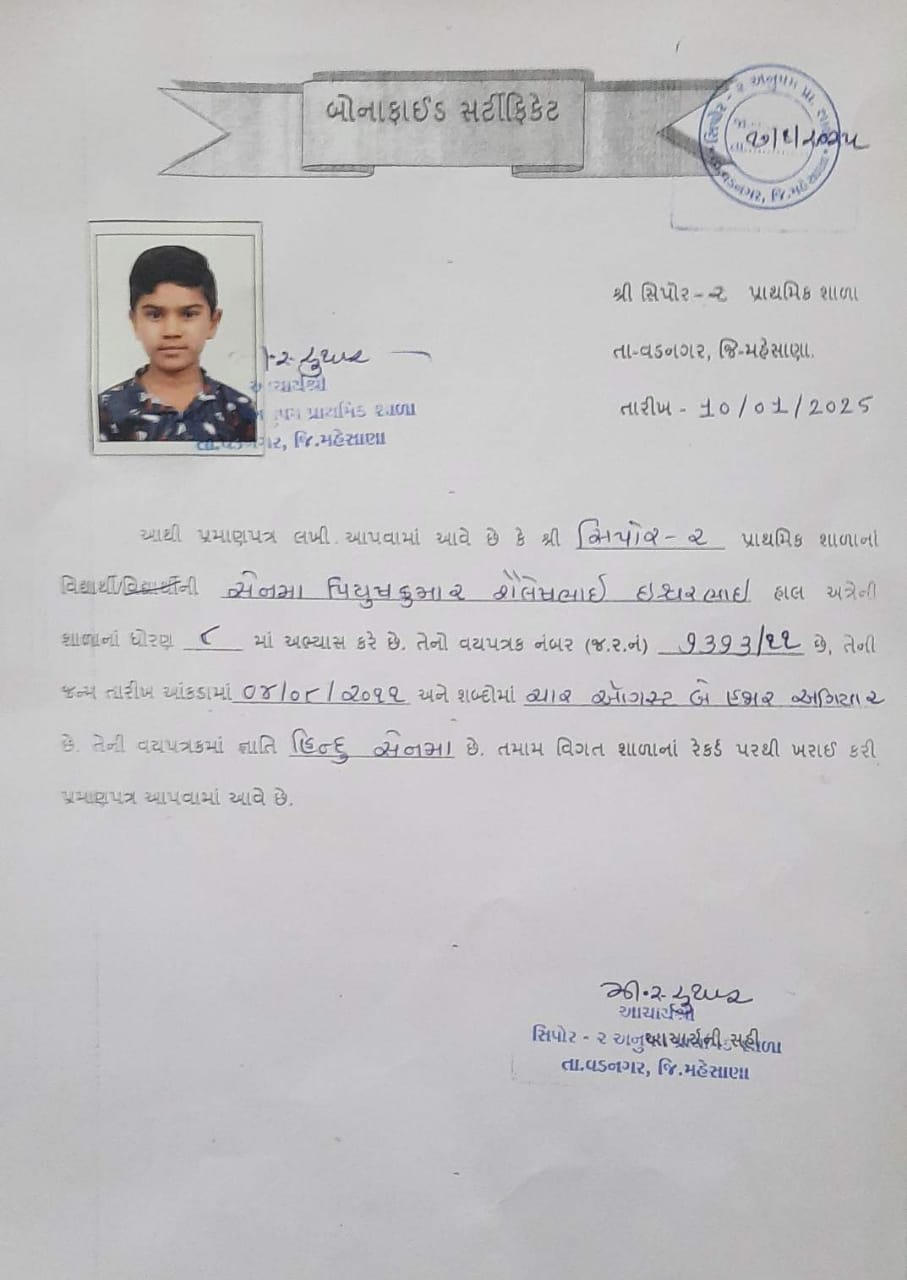 બોનાફાઈડ સર્ટીફિકેટ
સિપોર - ૨ અનુપમ પ્રા. શાળા
તા.વડનગર, જિ.મહેસાણા
શ્રી સિપોર - ૨ પ્રાથમિક શાળા
તા-વડનગર, જિ-મહેસાણા.
તારીખ - 10/01/2025
આચાર્યશ્રી
પ્રાથમિક શાળા
તા.વડનગર, જિ.મહેસાણા
આથી પ્રમાણપત્ર લખી આપવામાં આવે છે કે શ્રી સિપોર - ૨ પ્રાથમિક શાળાનાં
વિદ્યાર્થી/વિદ્યાર્થીની સેનમા પિયુષકુમાર શૈલેષભાઈ ઈશ્વરભાઈ હાલ અત્રેની
શાળાનાં ધોરણ ૮ માં અભ્યાસ કરે છે. તેનો વયપત્રક નંબર (જ.ર.નં) ૧૩૧૩/૨૨ છે, તેની
જન્મ તારીખ આંકડામાં ૦૪/૦૮/૨૦૧૧ અને શબ્દોમાં ચાર ઓગસ્ટ બે હજાર અગિયાર
છે. તેની વયપત્રકમાં જ્ઞાતિ હિન્દુ સેનમા છે. તમામ વિગત શાળાનાં રેકર્ડ પરથી ખરાઈ કરી
પ્રમાણપત્ર આપવામાં આવે છે.
આચાર્યશ્રી
આચાર્યની સહી
સિપોર - ૨ અનુપમ પ્રાથમિક શાળા
તા.વડનગર, જિ.મહેસાણા